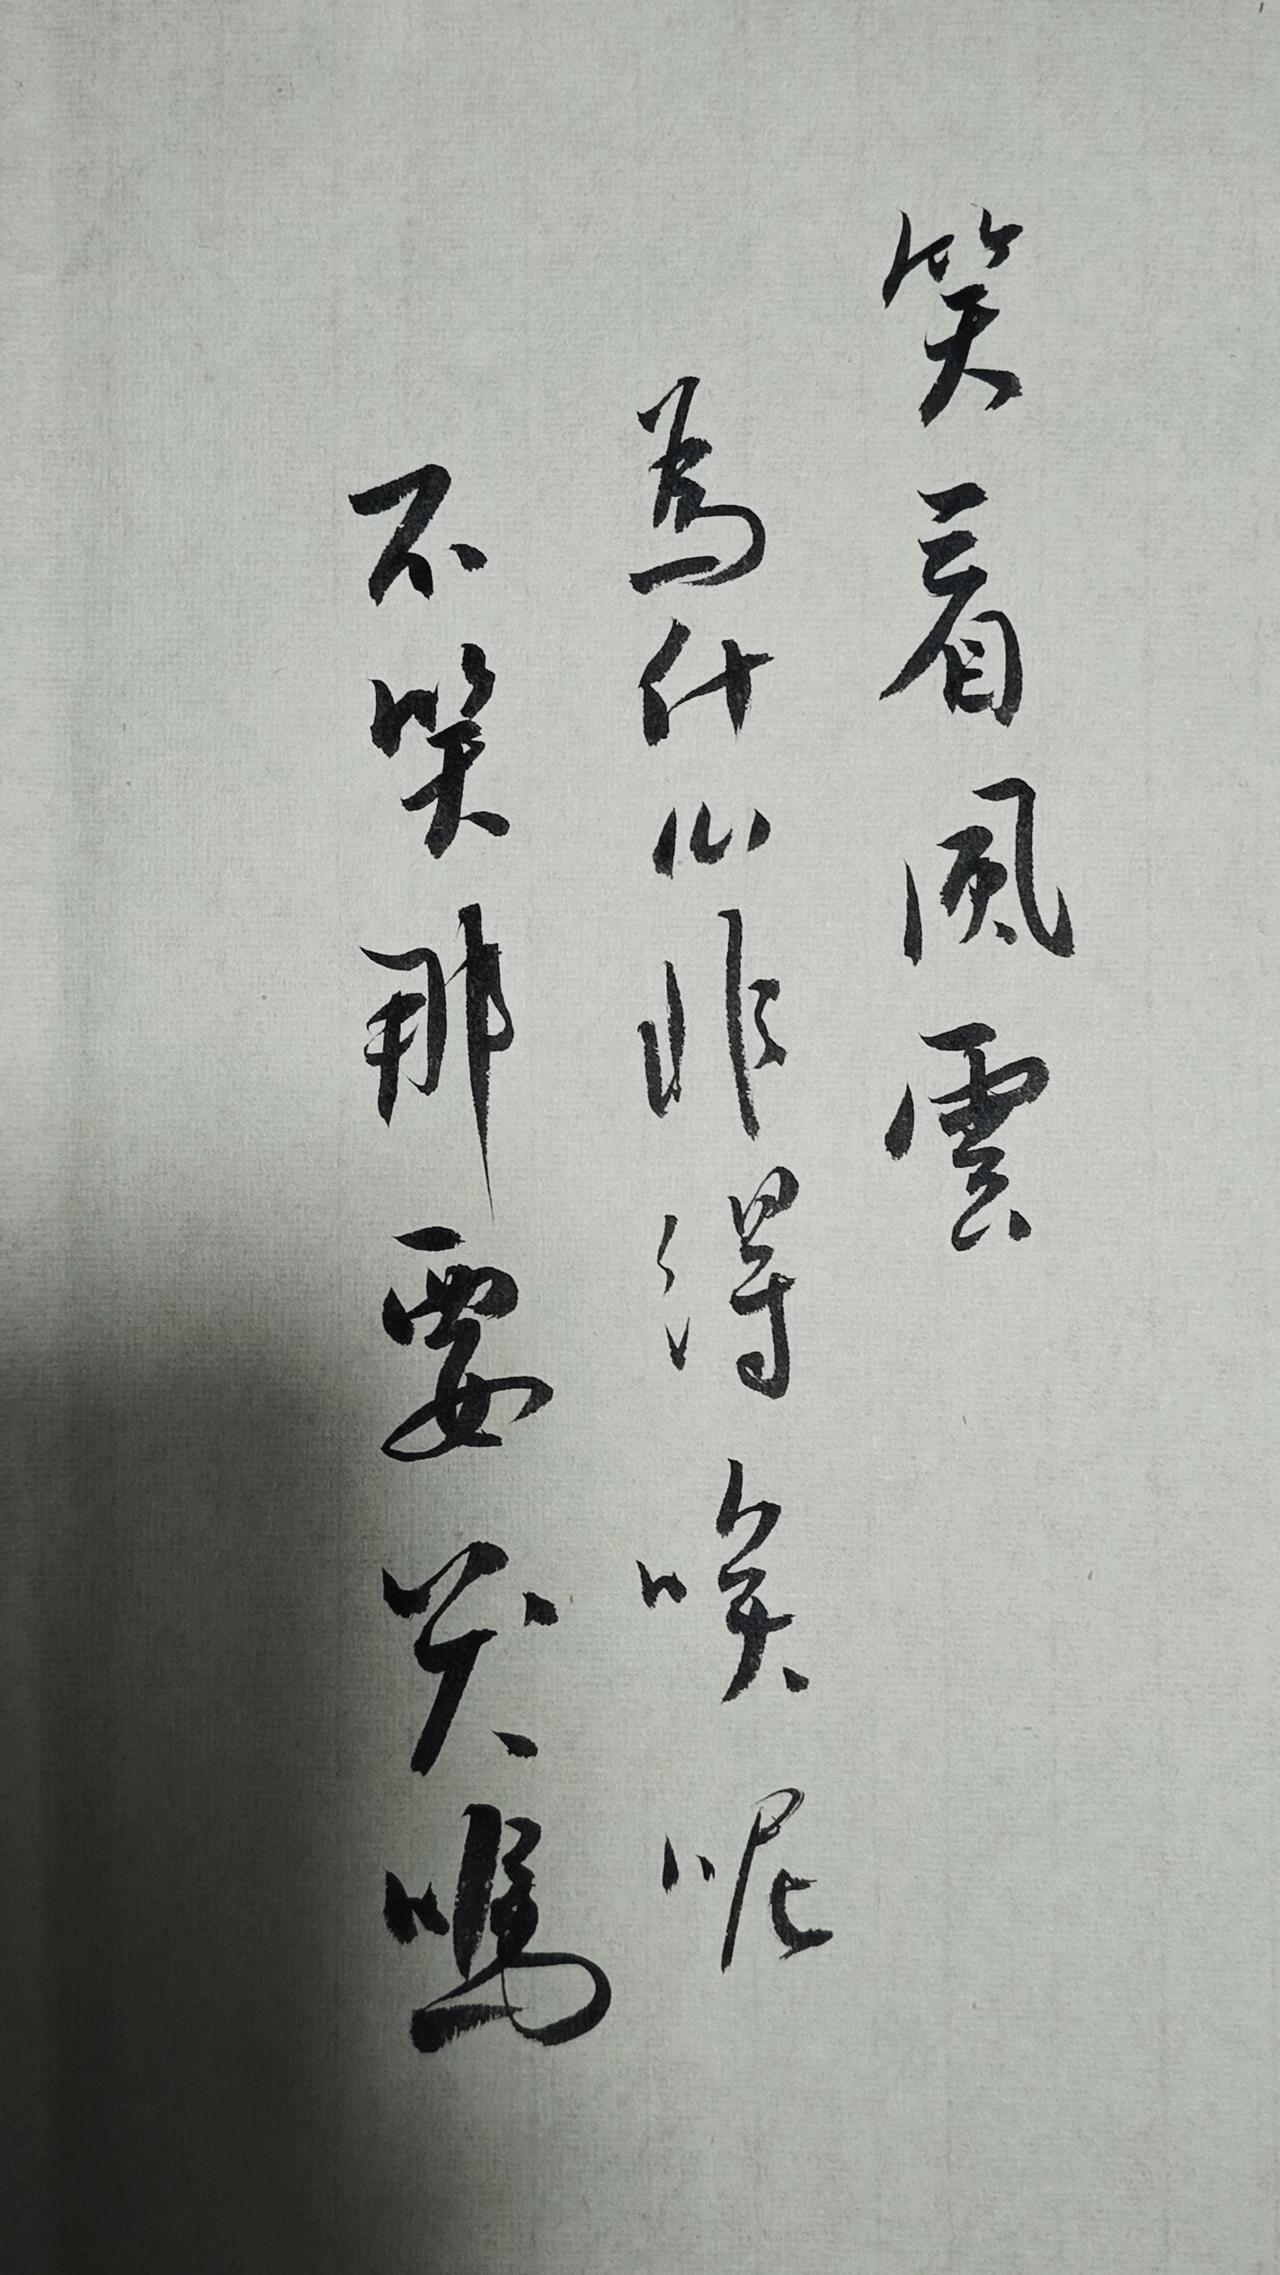 笑看風雲
為什么非得咲呢
不笑那要哭嗎